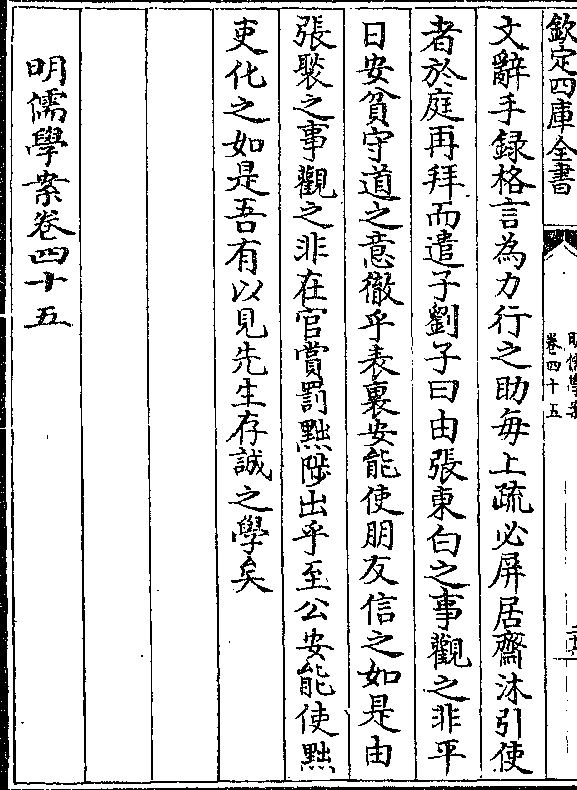 欽定四庫全書
明儒學案
卷四十五
文辭手録格言為力行之助每上疏必屏居齋沐引使
者於庭再拜而遣子劉子曰由張東白之事觀之非平
日安貧守道之意徹乎表裏安能使朋友信之如是由
張褧之事觀之非在官賞罰黜陟出乎至公安能使黜
吏化之如是吾有以見先生存誠之學矣
明儒學案卷四十五